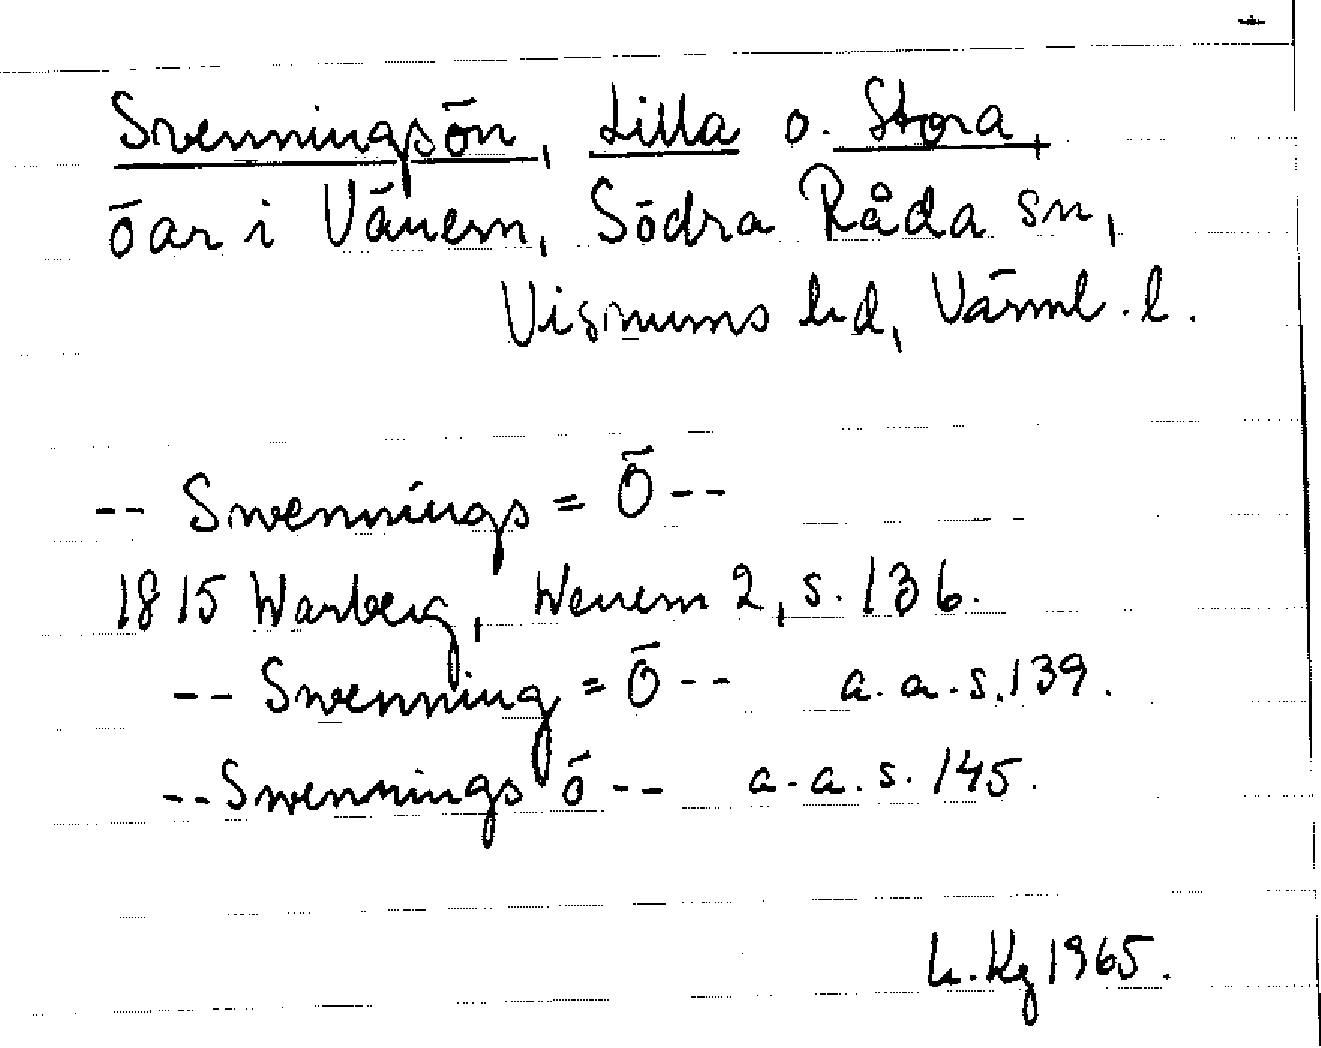 Svenningsön, Lilla o. Stora,
öar i Vänern, Södra Råda sn,
Visnums hd, Värml. l.
-- Swennings = Ö --
1815 Warberg, Wenern 2, s. 136.
-- Swenning = Ö -- a. a. s. 139.
-- Swennings ö -- a. a. s. 145.
L. Kg 1965.